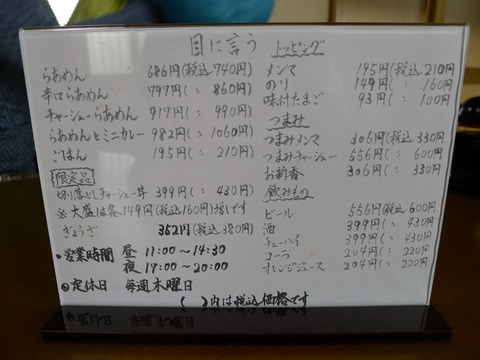 目に言う
らあめん 686円(税込740円)
辛口らあめん 797円(〃 860円)
チャーシューらあめん 917円(〃 990円)
らあめんとミニカレー 982円(〃 1060円)
ごはん 195円(〃 210円)
限定品
切り落としチャーシュー丼 399円(〃 430円)
※大盛は各149円(税込160円)増しです
ぎょうざ 352円(税込380円)
営業時間 昼 11:00〜14:30
夜 17:00〜20:00
定休日 毎週木曜日
トッピング
メンマ 195円(税込210円)
のり 149円(〃 160円)
味付たまご 93円(〃 100円)
つまみ
つまみメンマ 306円(税込330円)
つまみチャーシュー 556円(〃 600円)
お新香 306円(〃 330円)
飲みもの
ビール 556円(税込600円)
酒 399円(〃 430円)
チューハイ 399円(〃 430円)
コーラ 204円(〃 220円)
オレンジジュース 204円(〃 220円)
( )内は税込価格です